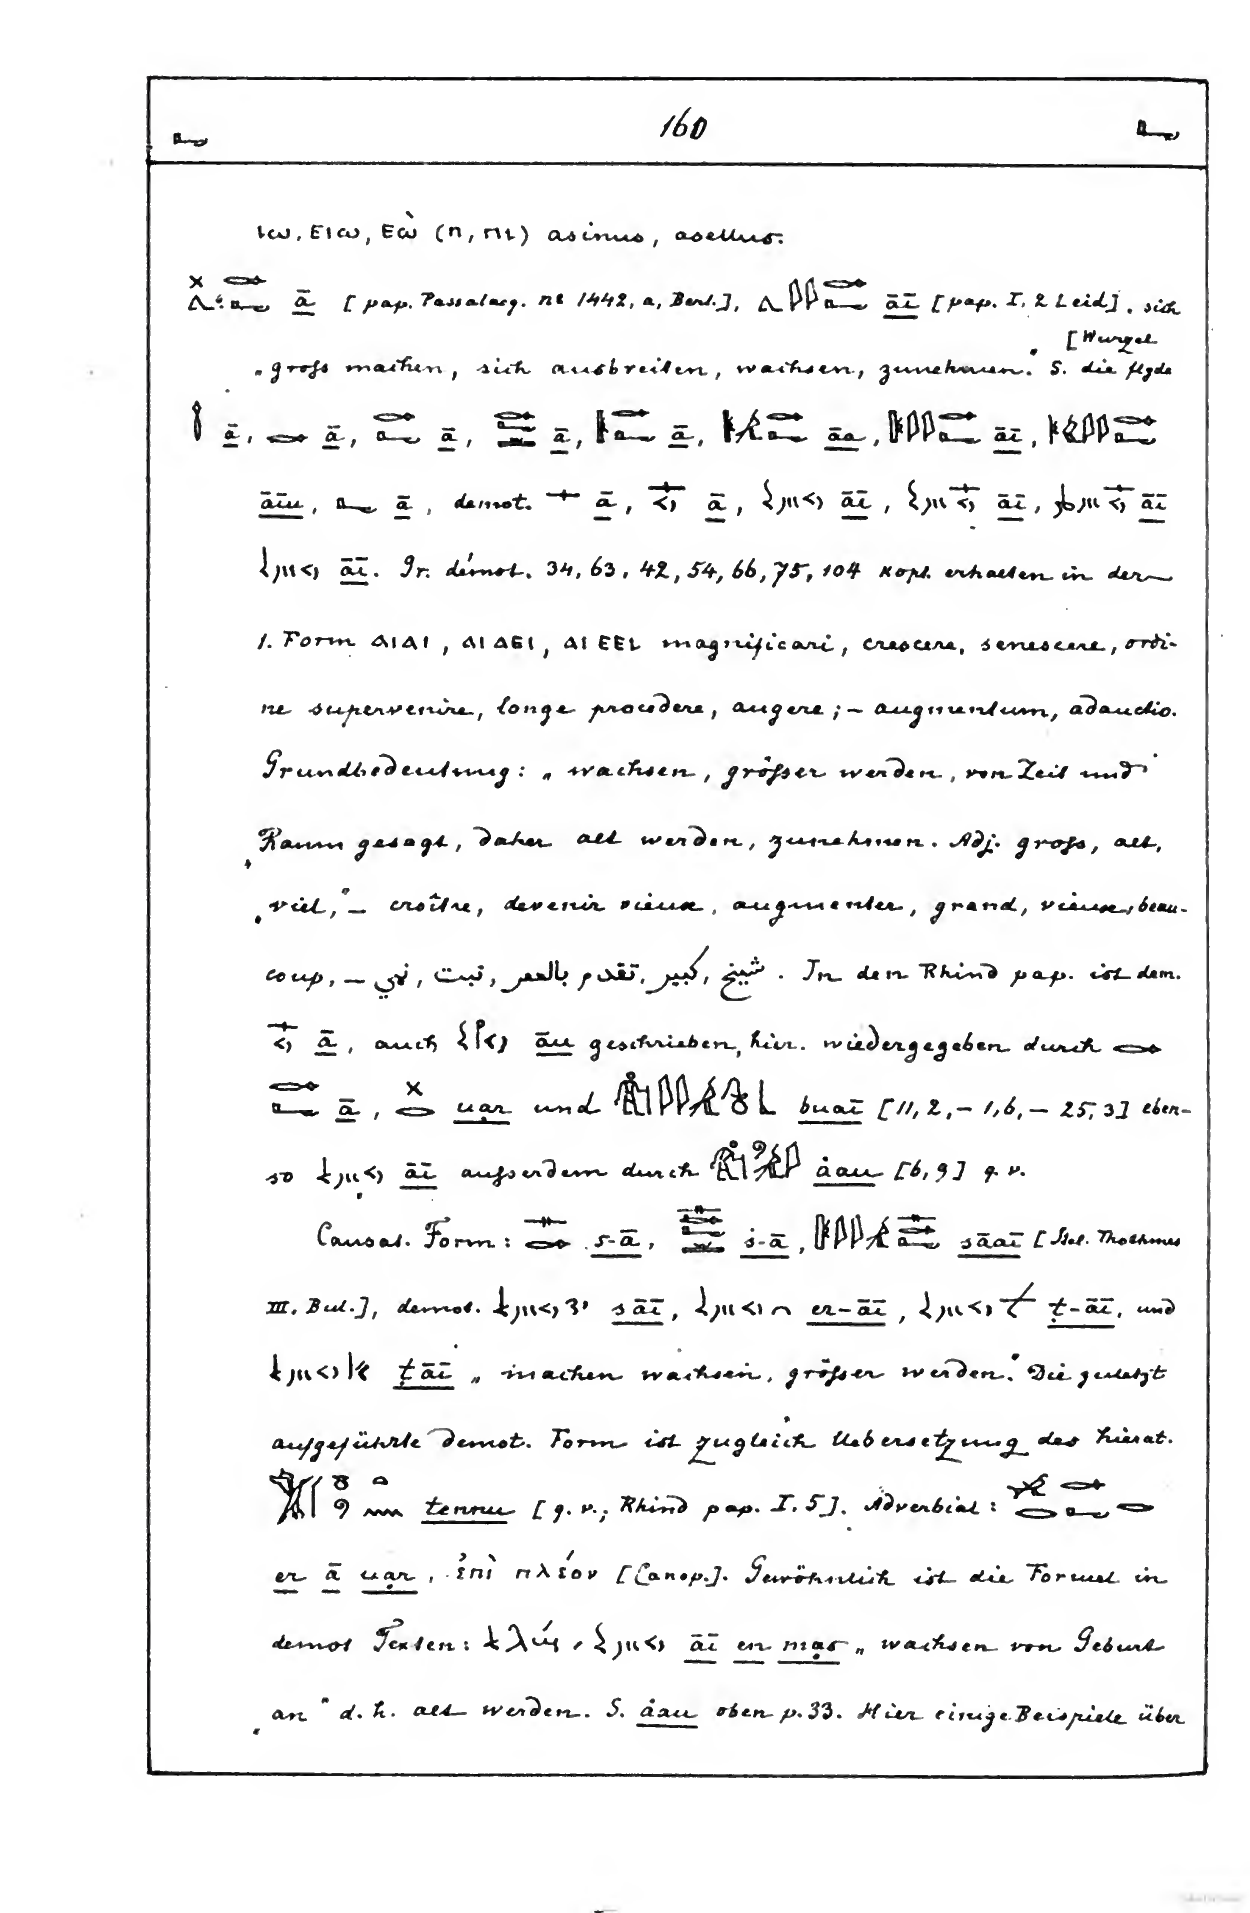 160
ⲓⲱ, ⲉⲓⲱ, ⲉⲱ̀ (ⲡ, ⲡⲓ) asinus, asellus.
ā [pap. Passalacq. № 1442, a, Berl.], āī [pap. I, 2 Leid], sich
[Wurzel
„gross machen, sich ausbreiten, wachsen, zunehmen." S. die flgde
ā, ā, ā, ā, ā, āa, āī,
āīu, ā, demot. ā, ā, āī, āī, āī
āī. Gr. démot. 34, 63, 42, 54, 66, 75, 104 kopt. erhalten in der
1. Form ⲁⲓⲁⲓ, ⲁⲓⲁⲉⲓ, ⲁⲓⲉⲉⲓ magnificari, crescere, senescere, ordi-
ne supervenire, longe procedere, augere; – augmentum, adauctio.
Grundbedeutung: „wachsen, grösser werden, von Zeit und
Raum gesagt, daher alt werden, zunehmen. Adj. gross, alt,
viel," – croître, devenir vieux, augmenter, grand, vieux, beau-
coup, – شيخ, كبير, تقدم بالعمر, نبت, نمي. In den Rhind pap. ist dem.
ā, auch āu geschrieben, hier. wiedergegeben durch
ā, uạr und buaī [11, 2, – 1, 6, – 25, 3] eben-
so āī ausserdem durch ȧau [6, 9] q. v.
Causat. Form: s-ā, ṡ-ā, sāaī [Stel. Thothmes
III. Bul.], demot. sāī, er-āī, ṭ-āī, und
ṭāī „machen wachsen, grösser werden." Die zuletzt
aufgeführte demot. Form ist zugleich Uebersetzung des hierat.
tennu [q. v.; Rhind pap. I. 5]. Adverbial:
er ā uạr, ἐπὶ πλέον [Canop.]. Gewöhnlich ist die Formel in
demot Texten: āī en mạs „wachsen von Geburt
an" d. h. alt werden. S. ȧau oben p. 33. Hier einige Beispiele über